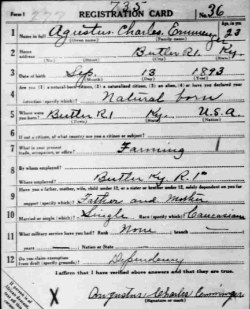 Form 1
735
REGISTRATION CARD
No. 36
1 Name in full Agustus Charles Emminger
(Given name) (Family name)
Age, in yrs. 23
2 Home address Butler R1 Ky.
(No.) (Street) (City) (State)
3 Date of birth Sep. 13 1893
(Month) (Day) (Year)
4 Are you (1) a natural-born citizen, (2) a naturalized citizen, (3) an alien, (4) or have you declared your intention (specify which)? Natural born
5 Where were you born? Butler R1 Ky. U.S.A.
(Town) (State) (Nation)
6 If not a citizen, of what country are you a citizen or subject?
7 What is your present trade, occupation, or office? Farming
8 By whom employed?
Where employed? Butler Ky R.1
9 Have you a father, mother, wife, child under 12, or a sister or brother under 12, solely dependent on you for support (specify which)? Father and Mother
10 Married or single (which)? Single Race (specify which)? Caucasian
11 What military service have you had? Rank None ; branch
years ; Nation or State
12 Do you claim exemption from draft (specify grounds)? Dependency
I affirm that I have verified above answers and that they are true.
X Augustus Charles Emminger
(Signature or mark)